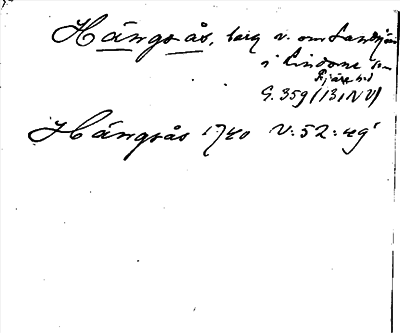 Hängsås, berg v. om Landsjön
i Lindome sn
Fjäre hd
G. 359 (131NV)
Hängsås 1740 V: 52: 4g¹